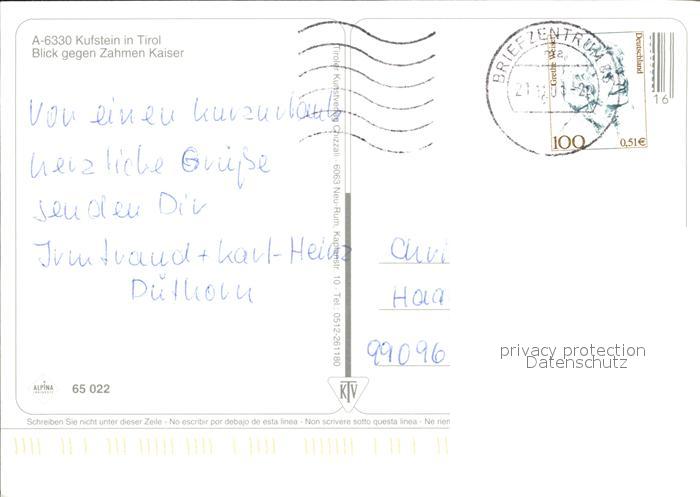 A-6330 Kufstein in Tirol
Blick gegen Zahmen Kaiser
Von einen Kurzurlaub
herzliche Grüße
senden Dir
Irmtraud + Karl-Heinz
Düthorn
ALPINA
65 022
Tiroler Kunstverlag Chizzali · 6063 Neu-Rum, Kaplanstr. 10 · Tel. 0512-261180
KTV
BRIEFZENTRUM
Deutschland
100
0,51€
16
Chri
Haa
99096
privacy protection
Datenschutz
Schreiben Sie nicht unter dieser Zeile - No escribir por debajo de esta linea - Non scrivere sotto questa linea - Ne rien